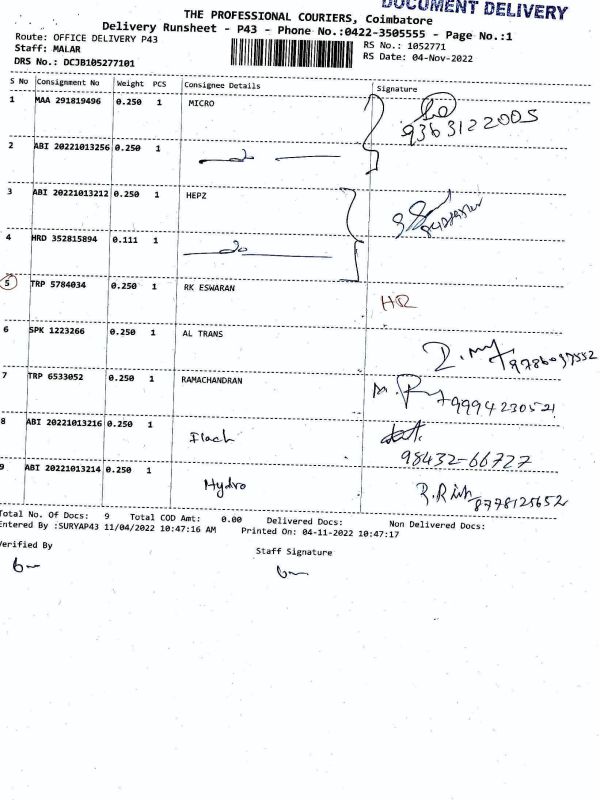 DOCUMENT DELIVERY
THE PROFESSIONAL COURIERS, Coimbatore
Delivery Runsheet - P43 - Phone No.:0422-3505555 - Page No.:1
Route: OFFICE DELIVERY P43 RS No.: 1052771
Staff: MALAR RS Date: 04-Nov-2022
DRS No.: DCJB105277101
S No Consignment No Weight PCS Consignee Details Signature
1 MAA 291819496 0.250 1 MICRO
9363122005
2 ABI 20221013256 0.250 1
3 ABI 20221013212 0.250 1 HEPZ
4 HRD 352815894 0.111 1
5 TRP 5784034 0.250 1 RK ESWARAN HR
6 SPK 1223266 0.250 1 AL TRANS
7 TRP 6533052 0.250 1 RAMACHANDRAN
9994230521
8 ABI 20221013216 0.250 1
98432-66727
9 ABI 20221013214 0.250 1 Hydro
8778125652
Total No. Of Docs: 9 Total COD Amt: 0.00 Delivered Docs: Non Delivered Docs:
Entered By :SURYAP43 11/04/2022 10:47:16 AM Printed On: 04-11-2022 10:47:17
Verified By Staff Signature